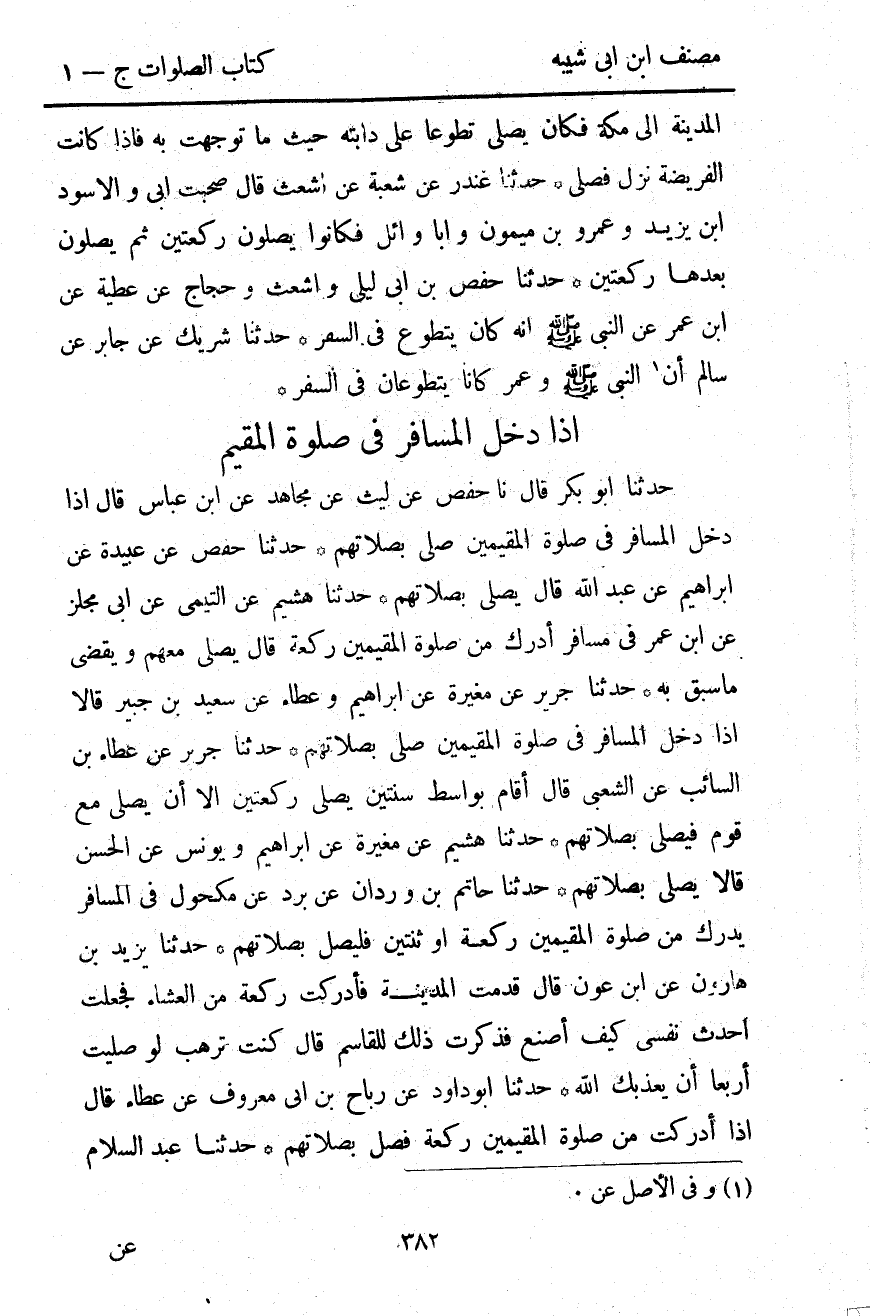 مصنف ابن ابى شيبه
كتاب الصلوات ج — ١
المدينة الى مكة فكان يصلى تطوعا على دابته حيث ما توجهت به فاذا كانت
الفريضة نزل فصلى * حدثنا غندر عن شعبة عن أشعث قال صحبت ابى و الاسود
ابن يزيد و عمرو بن ميمون و ابا وائل فكانوا يصلون ركعتين ثم يصلون
بعدها ركعتين * حدثنا حفص بن ابى ليلى و اشعث و حجاج عن عطية عن
ابن عمر عن النبى ﷺ انه كان يتطوع فى السفر * حدثنا شريك عن جابر عن
سالم أن١ النبى ﷺ و عمر كانا يتطوعان فى السفر *
اذا دخل المسافر فى صلوة المقيم
حدثنا ابو بكر قال نا حفص عن ليث عن مجاهد عن ابن عباس قال اذا
دخل المسافر فى صلوة المقيمين صلى بصلاتهم * حدثنا حفص عن عبيدة عن
ابراهيم عن عبد الله قال يصلى بصلاتهم * حدثنا هشيم عن التيمى عن ابى مجلز
عن ابن عمر فى مسافر أدرك من صلوة المقيمين ركعة قال يصلى معهم و يقضى
ماسبق به * حدثنا جرير عن مغيرة عن ابراهيم و عطاء عن سعيد بن جبير قالا
اذا دخل المسافر فى صلوة المقيمين صلى بصلاتهم * حدثنا جرير عن عطاء بن
السائب عن الشعبى قال أقام بواسط سنتين يصلى ركعتين الا أن يصلى مع
قوم فيصلى بصلاتهم * حدثنا هشيم عن مغيرة عن ابراهيم و يونس عن الحسن
قالا يصلى بصلاتهم * حدثنا حاتم بن وردان عن برد عن مكحول فى المسافر
يدرك من صلوة المقيمين ركعة او ثنتين فليصل بصلاتهم * حدثنا يزيد بن
هارون عن ابن عون قال قدمت المدينة فأدركت ركعة من العشاء فجعلت
أحدث نفسى كيف أصنع فذكرت ذلك للقاسم قال كنت ترهب لو صليت
أربعا أن يعذبك الله * حدثنا ابوداود عن رباح بن ابى معروف عن عطاء قال
اذا أدركت من صلوة المقيمين ركعة فصل بصلاتهم * حدثنا عبد السلام
(١) و فى الأصل عن .
٣٨٢
عن